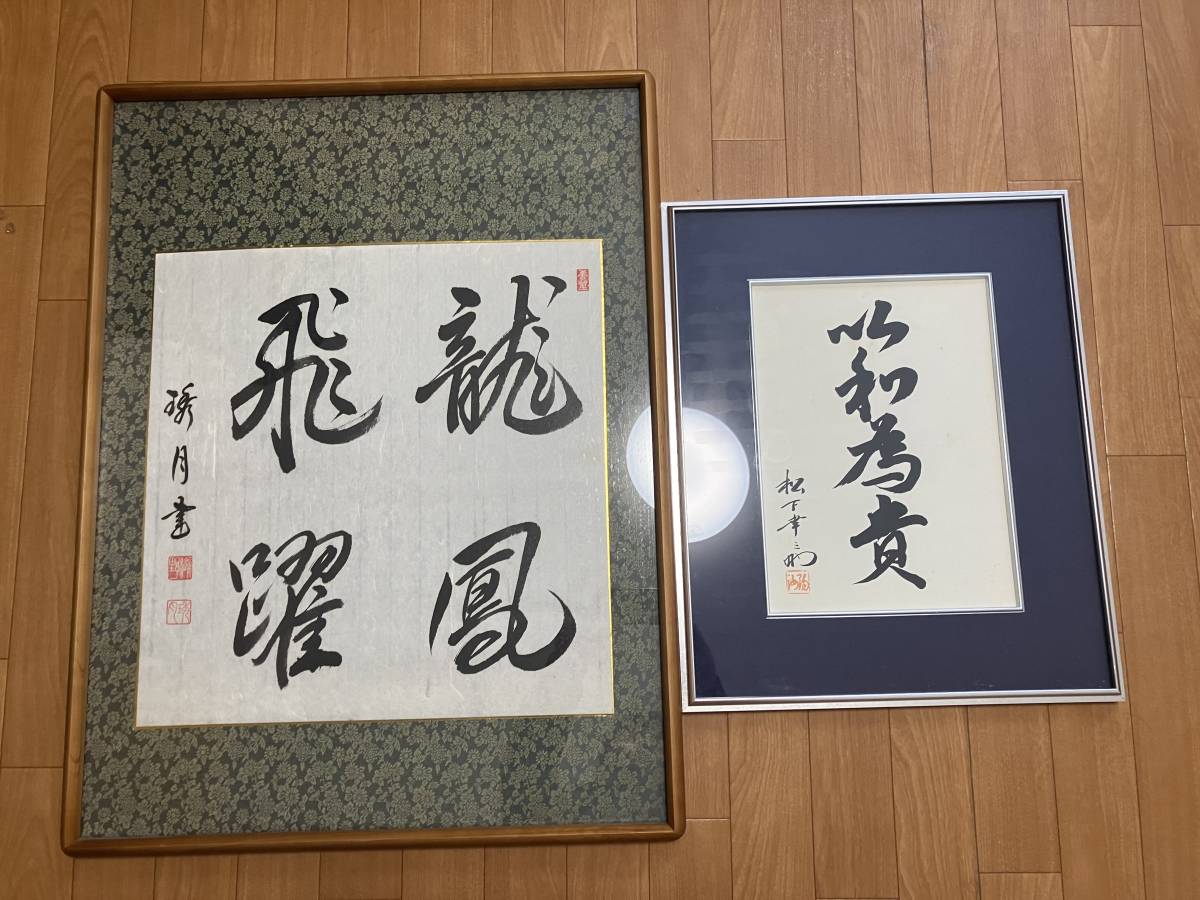 龍鳳
飛躍
琇月書
以和為貴
松下幸之助